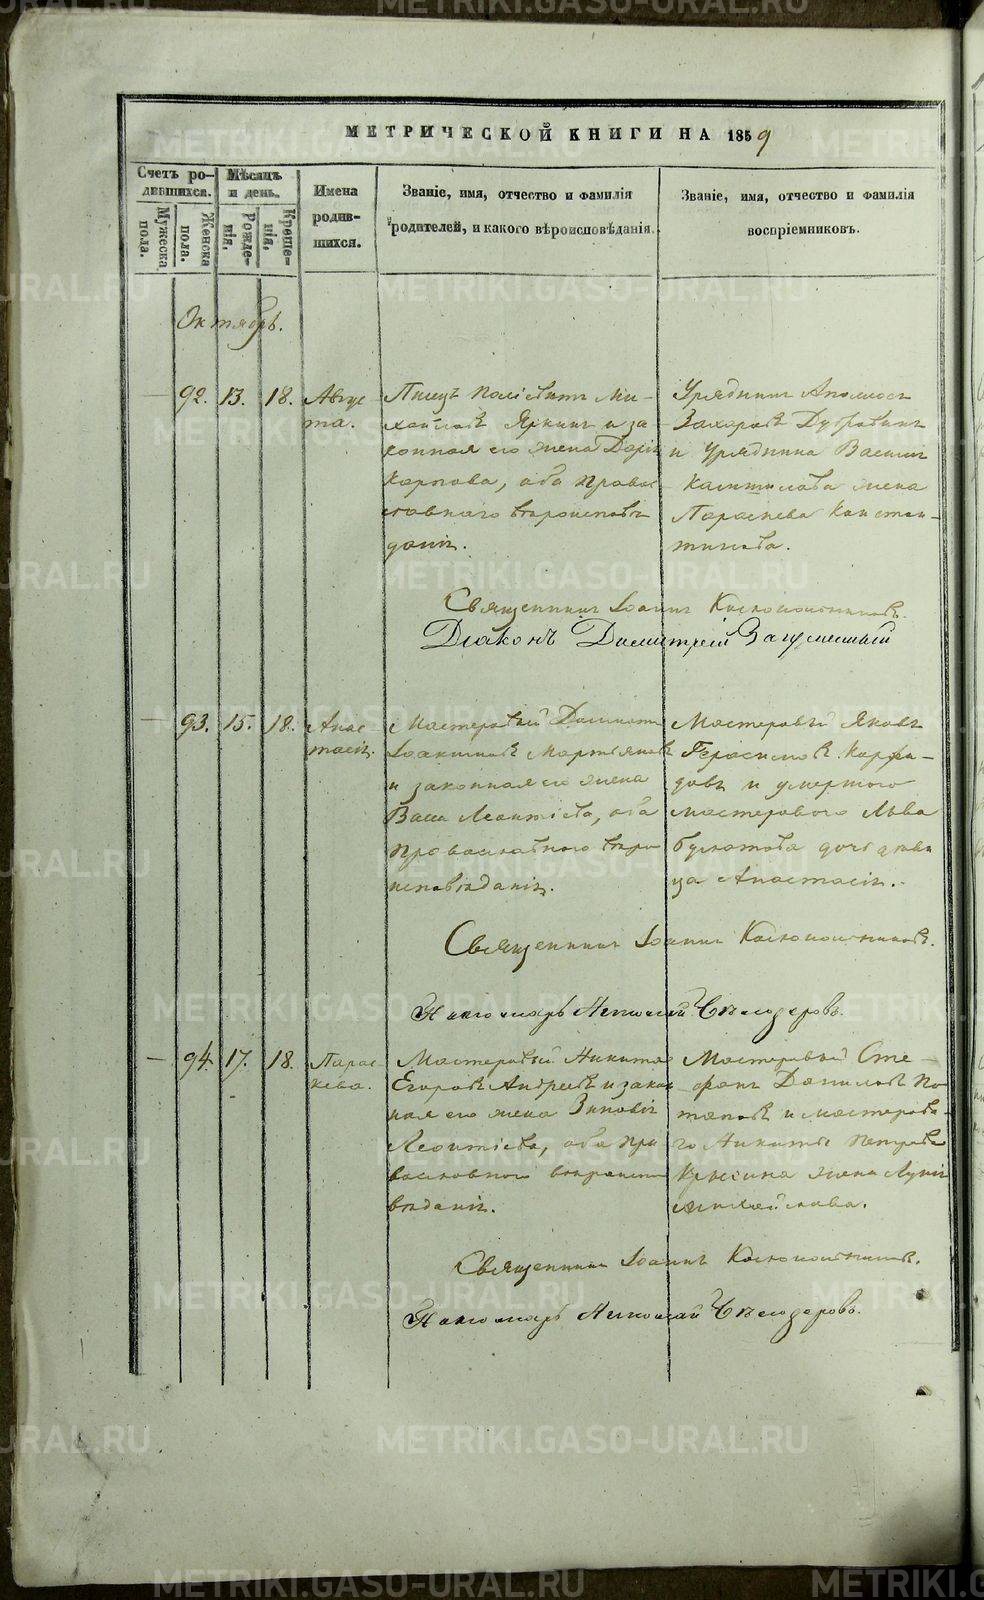 МЕТРИЧЕСКОЙ КНИГИ НА 1859
Счетъ ро-
дившихся.
Мужеска
пола.
Женска
пола.
Мѣсяцъ
и день.
Рожде-
нія.
Креще-
нія.
Имена
родив-
шихся.
Званіе, имя, отчество и фамилія
родителей, и какого вѣроисповѣданія.
Званіе, имя, отчество и фамилія
воспріемниковъ.
Октябрь.
92. 13. 18. Авгус-
та.
Писецъ Ми-
хайловъ Яркинъ и за
конная его жена Дарія
Карпова, оба правос
лавнаго вѣроисповѣ
данія.
Урядникъ
Захаровъ Дубровинъ
и Урядника Василія
жена
Параскева Констан-
тинова.
Священникъ Іоаннъ
Діаконъ Димитрій
93. 15. 18. Анас-
тасія.
Мастеровый
Іоакимовъ Мартьяновъ
и законная его жена
Васса Леонтіева, оба
православнаго вѣро
исповѣданія.
Мастеровый Яковъ
Герасимовъ
и умершого
мастероваго Льва
Булатова дочь дѣви
ца Анастасія.
Священникъ Іоаннъ
Пономарь Николай Бѣлозеровъ.
94. 17. 18. Парас-
кева.
Мастеровый Никита
Егоровъ Андреевъ и закон
ная его жена Зиновія
Леонтіева, оба пра
вославнаго вѣроиспо
вѣданія.
Мастеровый Сте-
фанъ Даниловъ По
таповъ и мастерова-
го Никиты Петрова
жена
Священникъ Іоаннъ
Пономарь Николай Бѣлозеровъ.
METRIKI.GASO-URAL.RU